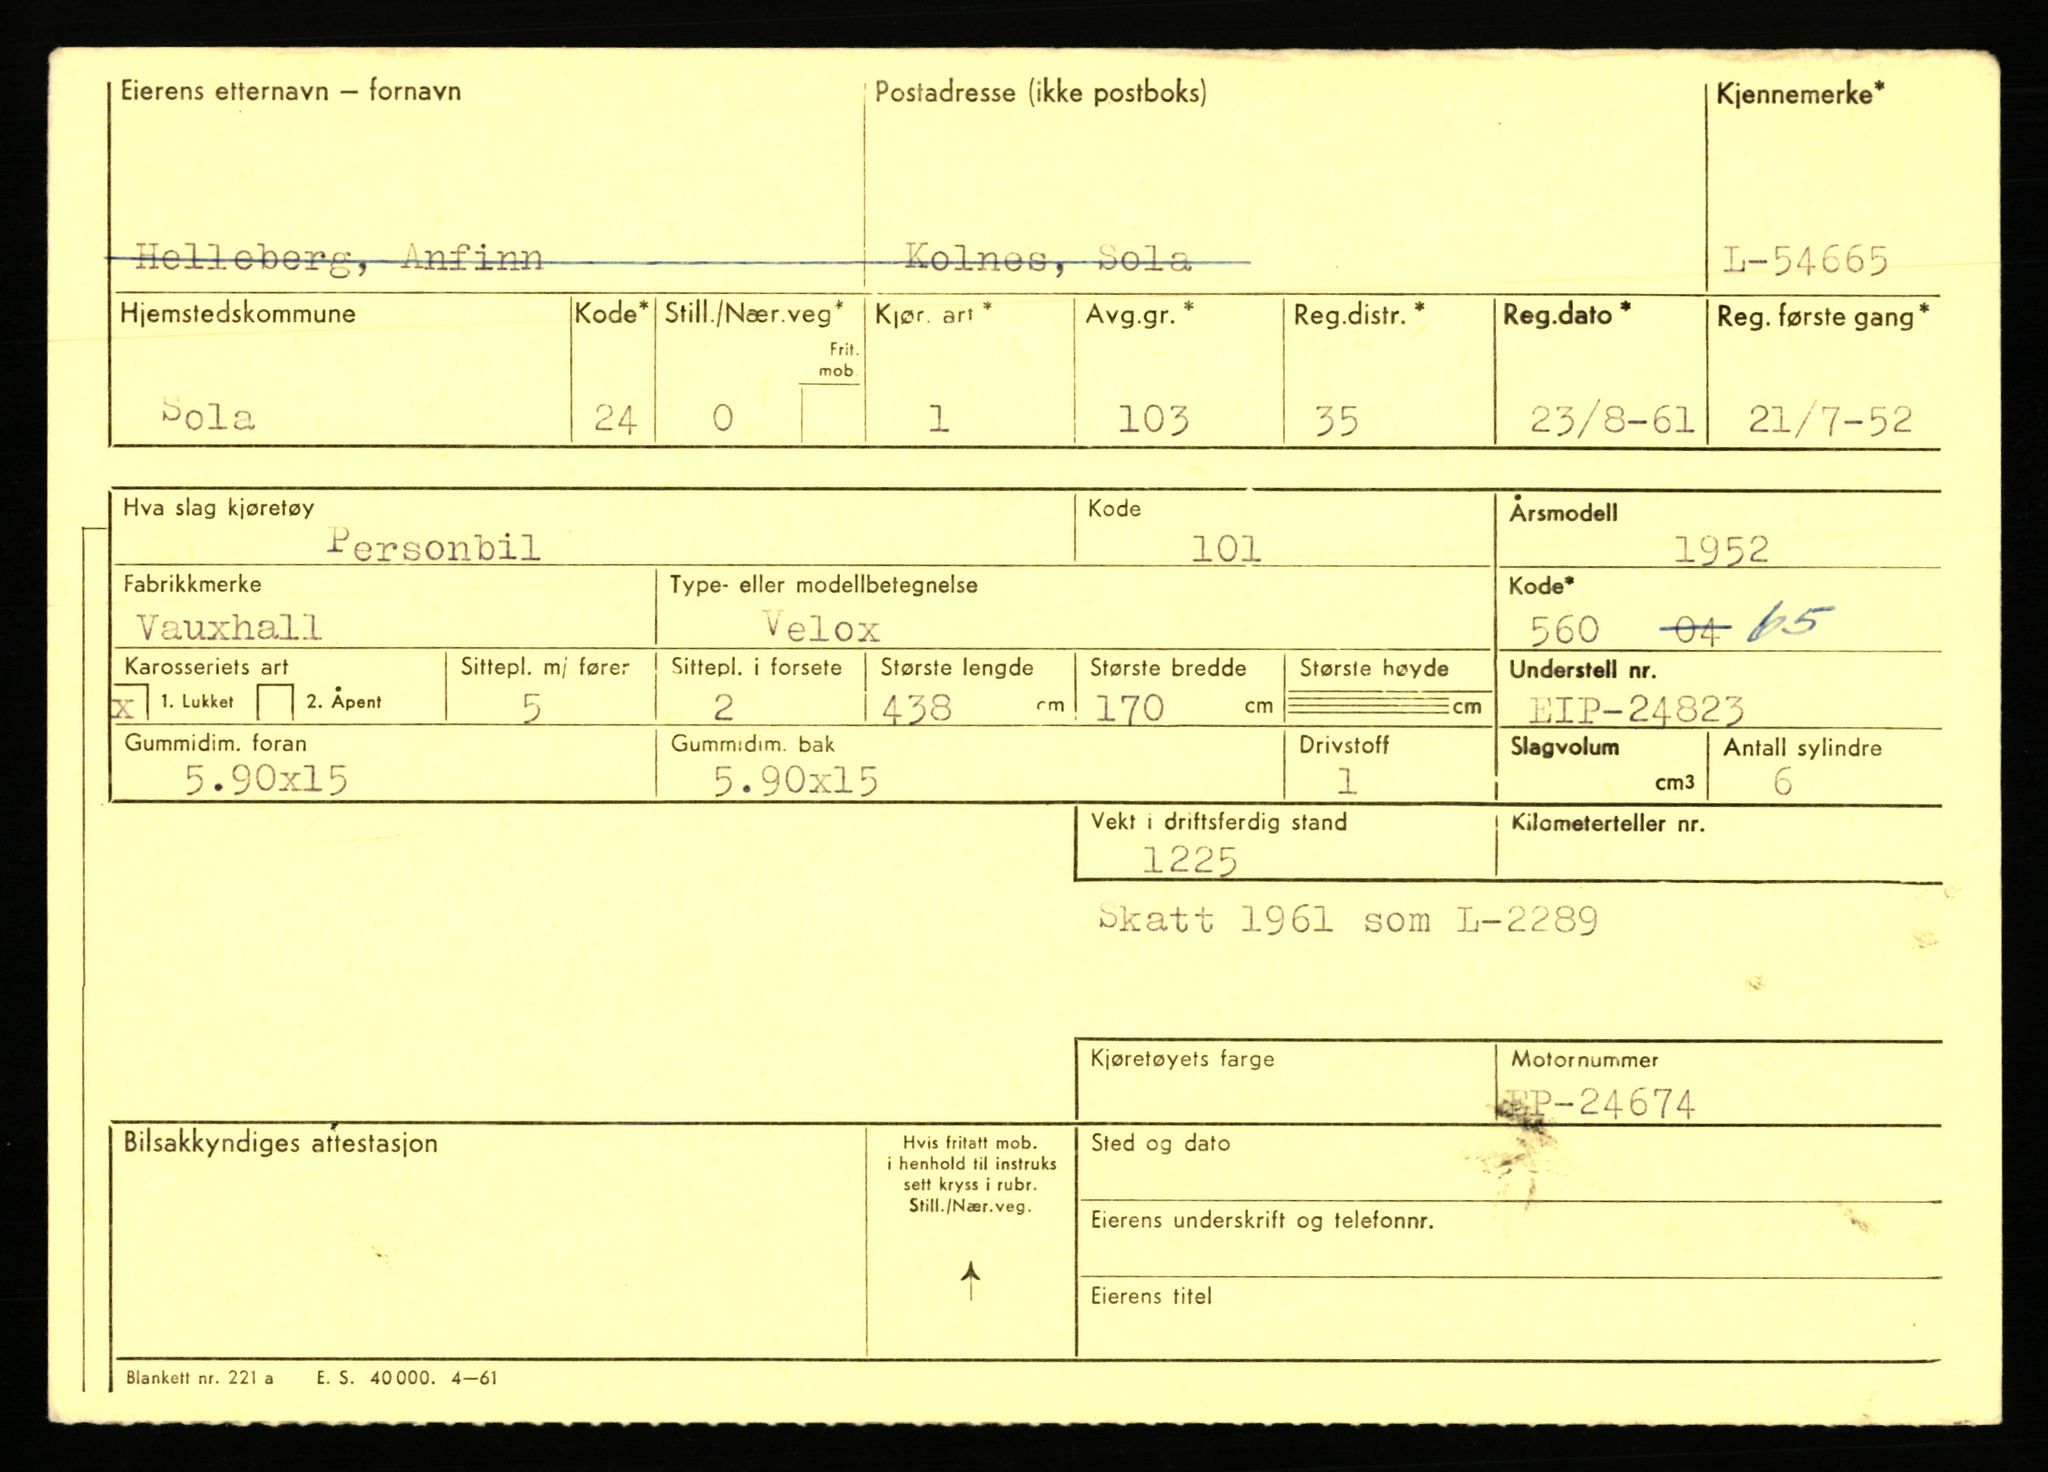 Eierens etternavn – fornavn Postadresse (ikke postboks) Kjennemerke*
Helleberg, Anfinn Kolnes, Sola L-54665
Hjemstedskommune Kode* Still./Nær.veg* Kjør. art* Avg.gr.* Reg.distr.* Reg.dato* Reg. første gang*
Frit.
mob.
Sola 24 0 1 103 35 23/8-61 21/7-52
Hva slag kjøretøy Kode Årsmodell
Personbil 101 1952
Fabrikkmerke Type- eller modellbetegnelse Kode*
Vauxhall Velox 560 04 65
Karosseriets art Sittepl. m/ fører Sittepl. i forsete Største lengde Største bredde Største høyde Understell nr.
x 1. Lukket 2. Åpent 5 2 438 cm 170 cm cm EIP-24823
Gummidim. foran Gummidim. bak Drivstoff Slagvolum Antall sylindre
5.90x15 5.90x15 1 cm3 6
Vekt i driftsferdig stand Kilometerteller nr.
1225
Skatt 1961 som L-2289
Kjøretøyets farge Motornummer
EP-24674
Bilsakkyndiges attestasjon Hvis fritatt mob. Sted og dato
i henhold til instruks
sett kryss i rubr.
Still./Nær.veg.
Eierens underskrift og telefonnr.
Eierens titel
Blankett nr. 221 a E. S. 40 000. 4–61